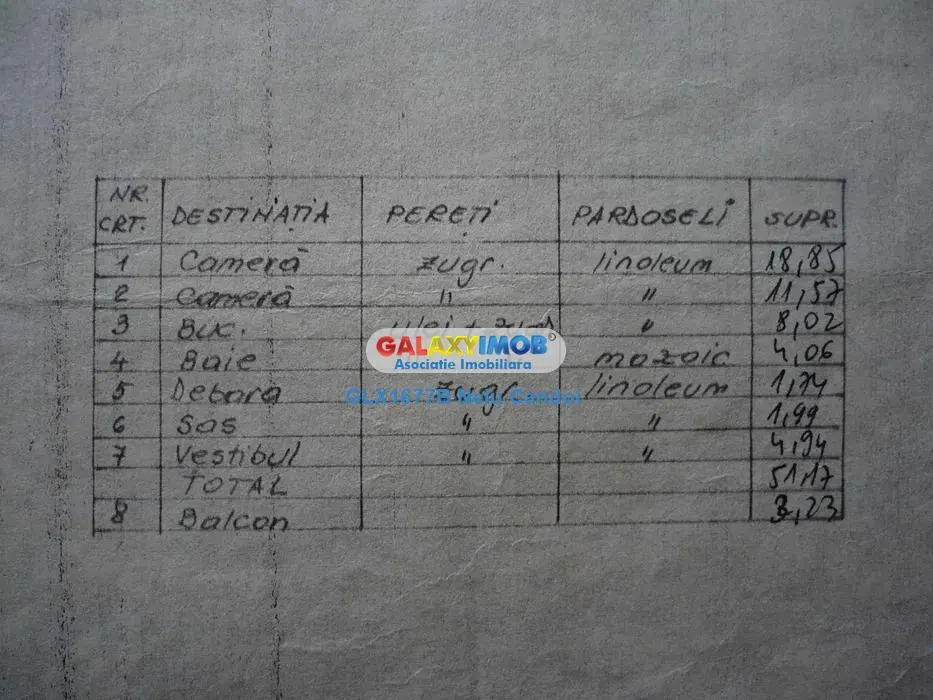 NR. CRT. DESTINAȚIA PEREȚI PARDOSELI SUPR.
1 Cameră zugr. linoleum 18,85
2 Cameră " " 11,57
3 Buc. ulei + zugr " 8,02
4 Baie mozaic 4,06
5 Debara zugr. linoleum 1,74
6 Sas " " 1,99
7 Vestibul " " 4,94
TOTAL 51,17
8 Balcon 3,23
GALAXYIMOB
Asociatie Imobiliara
GLX1677B